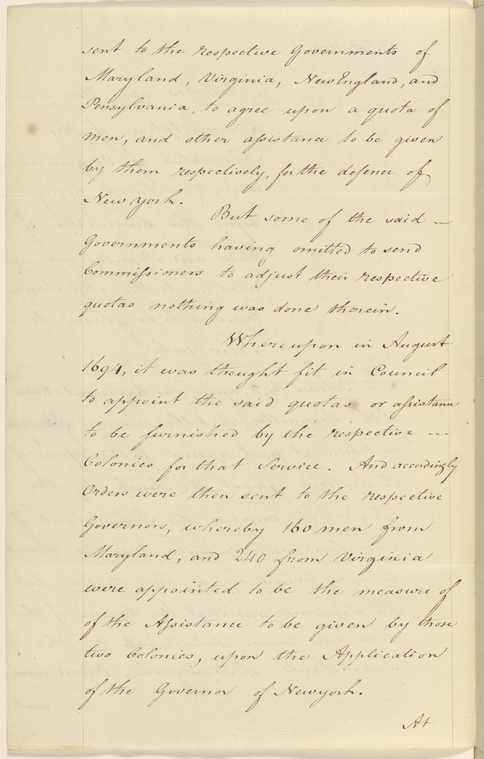 sent to the respective Governments of
Maryland, Virginia, New England, and
Pensylvania, to agree upon a quota of
men, and other assistance to be given
by them respectively, for the defence of
New york.
But some of the said –
Governments having omitted to send
Commissioners to adjust their respective
quotas nothing was done therein.
Whereupon in August
1694, it was thought fit in Council
to appoint the said quotas or assistance
to be furnished by the respective –
Colonies for that Service. And accordingly
Orders were then sent to the respective
Governors, whereby 160 men from
Maryland, and 240 from Virginia
were appointed to be the measure of
of the Assistance to be given by those
two Colonies, upon the Application
of the Governor of New york.
At